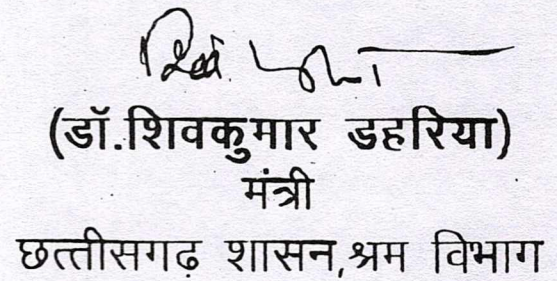 (डॉ.शिवकुमार डहरिया)
मंत्री
छत्तीसगढ़ शासन,श्रम विभाग